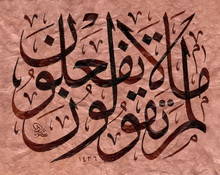 لم تقولون
ما لا تفعلون